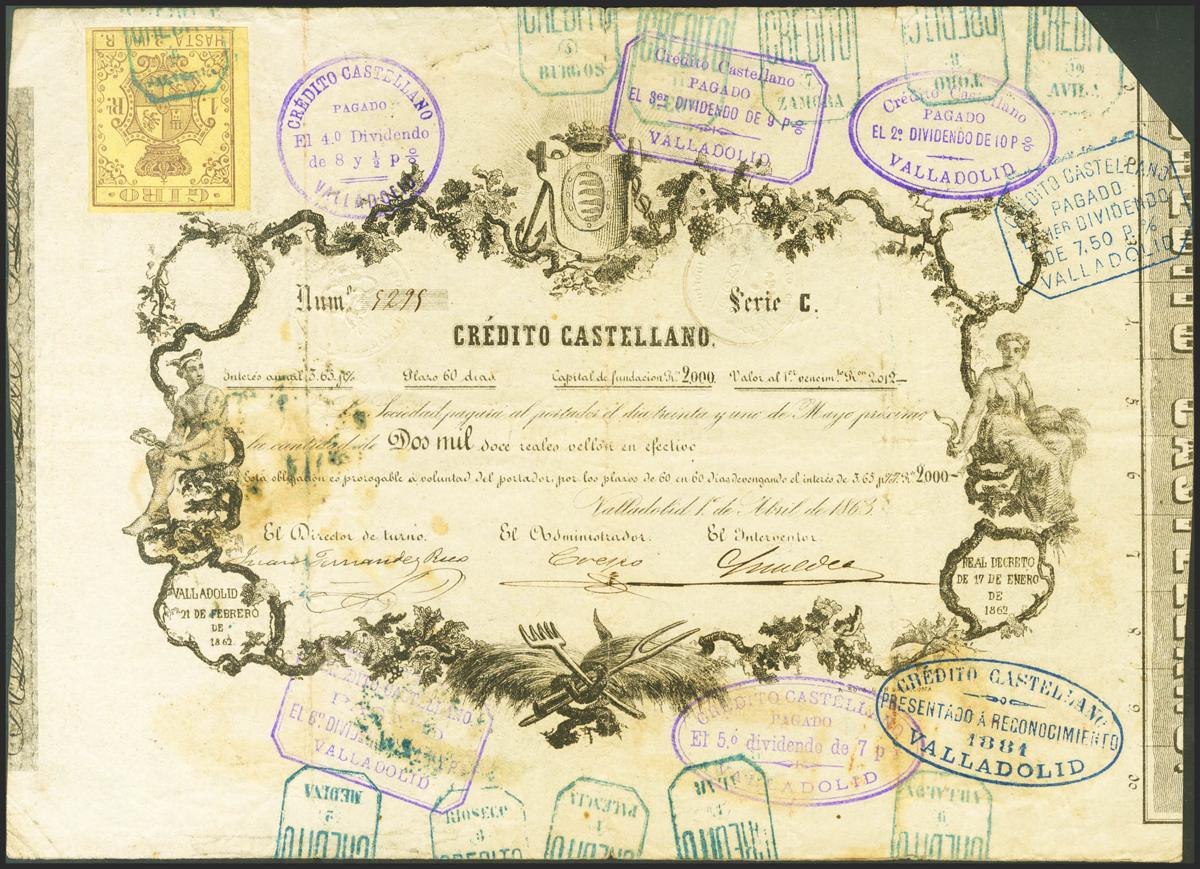 HASTA 2.000 R.
1. Rl.
GIRO
CRÉDITO
5
BURGOS
CRÉDITO
7
ZAMORA
CREDITO
8
TORO
CRÉDITO
10
AVILA
CRÉDITO CASTELLANO
PAGADO
El 4.º Dividendo
de 8 y ½ p 0/0
VALLADOLID
Crédito Castellano
PAGADO
EL 3er DIVIDENDO DE 9 P 0/0
VALLADOLID
Crédito Castellano
PAGADO
EL 2º DIVIDENDO DE 10 P 0/0
VALLADOLID
CRÉDITO CASTELLANO
PAGADO
DIVIDENDO
DE 7,50 P. %
VALLADOLID
Numº 5295
Serie C.
CRÉDITO CASTELLANO.
Interés anual 3.65 p% Plazo 60 dias Capital de fundacion Rs 2,000. Valor al 1er vencimto Rs on 2.012—
La Sociedad pagará al portador el dia treinta y uno de Mayo próximo,
la cantidad de Dos mil doce reales vellon en efectivo
Está obligacion es prorogable á voluntad del portador, por los plazos de 60 en 60 dias devengando el interés de 3.65 p% Rs 2,000—
Valladolid 1º de Abril de 1863
El Director de turno. El Administrador. El Interventor
Fernandez Rico Crespo
VALLADOLID
21 DE FEBRERO
DE
1862
REAL DECRETO
DE 17 DE ENERO
DE
1862
CASTELLANO.
PAGADO
EL 6º DIVIDENDO
VALLADOLID
CRÉDITO CASTELLANO
PAGADO
El 5.º dividendo de 7 p
VALLADOLID
CRÉDITO CASTELLANO
PRESENTADO Á RECONOCIMIENTO
1881
VALLADOLID
MEDINA
2
CRÉDITO
RIOSECO
3
CREDITO
PALENCIA
1
CREDITO
CREDITO
9
CREDITO
CRÉDITO CASTELLANO.
4
5
6
7
8
9
10